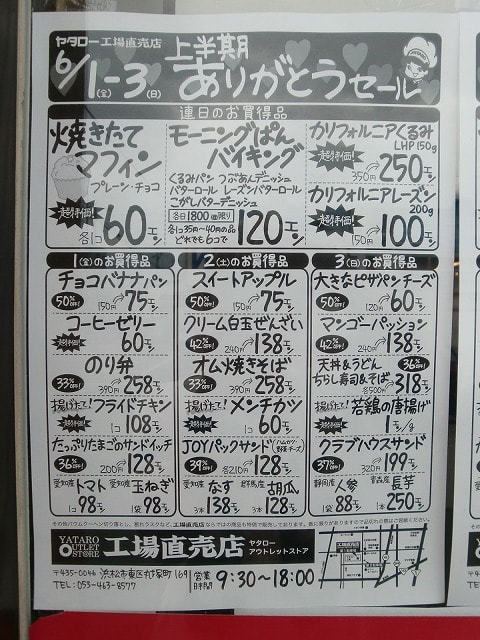 ヤタロー工場直売店
6/1(金)-3(日)
上半期
ありがとうセール
連日のお買得品
焼きたて
マフィン
プレーン・チョコ
超特価!
各1コ 60エン
モーニングぱん
バイキング
くるみパン つぶあんデニッシュ
バターロール レーズンバターロール
こがしバターデニッシュ
各日1800個限り
各1コ35円~40円の品
どれでも6コで
120エン
カリフォルニアくるみ
LHP 150g
超特価!
350円→250エン
カリフォルニアレーズン
200g
超特価!
150円→100エン
1(金)のお買得品
チョコバナナパン
50%OFF! 150円→75エン
コーヒーゼリー
超特価! 60エン
のり弁
33%OFF! 390円→258エン
揚げたて!フライドチキン
超特価! 1コ 108エン
たっぷりたまごのサンドイッチ
36%OFF! 200円→128エン
愛知産 トマト 1コ 98エン
愛知産 玉ねぎ 1袋 98エン
2(土)のお買得品
スイートアップル
50%OFF! 150円→75エン
クリーム白玉ぜんざい
42%OFF! 240円→138エン
オム焼きそば
33%OFF! 390円→258エン
揚げたて!メンチカツ
超特価! 1コ 60エン
JOYパックサンド(ハムカツ 野菜チーズ)
39%OFF! 各210円→128エン
愛知産 なす 3本 138エン
群馬産 胡瓜 3本 128エン
3(日)のお買得品
大きなピザパンチーズ
50%OFF! 120円→60エン
マンゴーパッション
42%OFF! 240円→138エン
天丼&うどん
ちらし寿司&そば
36%OFF!
各500円→318エン
揚げたて!若鶏の唐揚げ
超特価! 1エン/g
クラブハウスサンド
37%OFF! 320円→199エン
静岡産 人参 1袋 88エン
青森産 長芋 1本 250エン
その他バウムクーヘン切り落とし、割れラスクなど、工場直売店ならではの商品も特価で販売しております。数に限りがありますので品切れの際はご容赦ください。
YATARO
OUTLET
STORE
工場直売店
ヤタロー
アウトレットストア
〒435-0046 浜松市東区丸塚町169
TEL:053-463-8577
営業時間 9:30~18:00